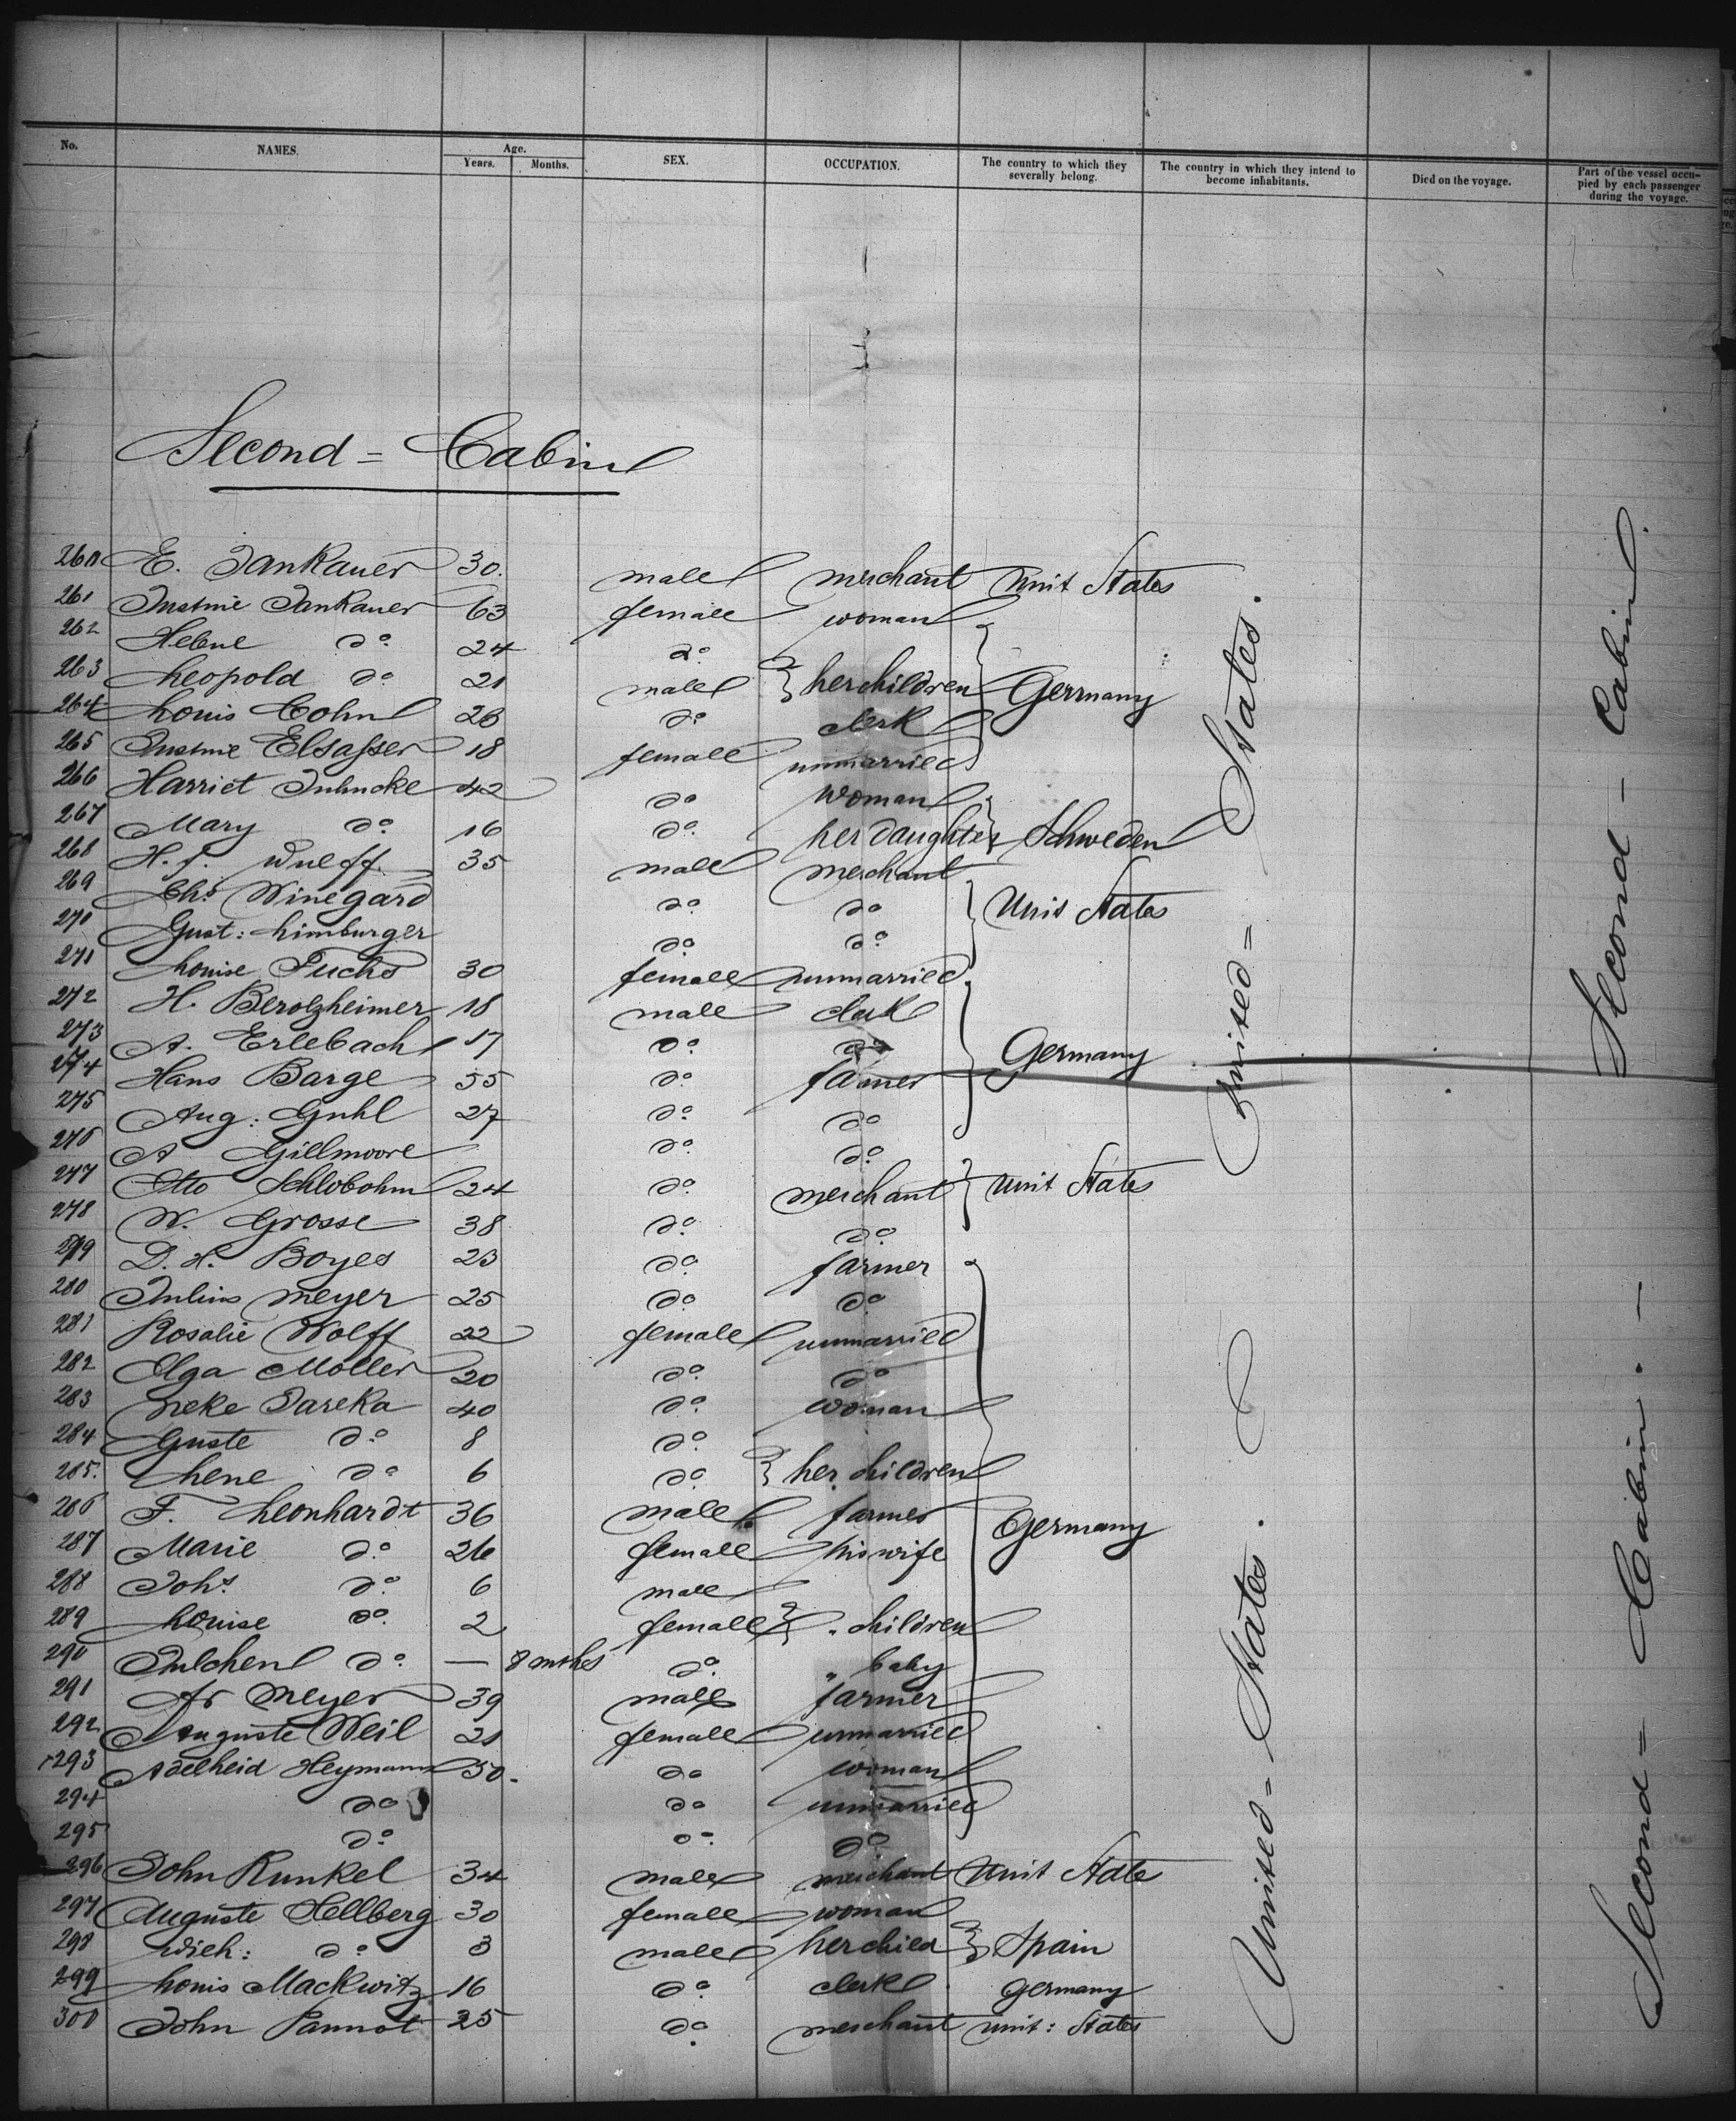 No. NAMES. Age. Years. Months. SEX. OCCUPATION. The country to which they severally belong. The country in which they intend to become inhabitants. Died on the voyage. Part of the vessel occupied by each passenger during the voyage.
Second = Cabin
260 E. Jankauer 30. male merchant Unit States
261 Justine Jankauer 63 female woman
262 Helene do 24 do
263 Leopold do 21 male } her children Germany
264 Louis Cohn 26 do clerk
265 Justine Elsasser 18 female unmarried
266 Harriet Juhncke 42 do Woman
267 Mary do 16 do her daughter Schweden
268 H. J. Wueff 35 male merchant
269 Chs Winegard do do Unit States
270 Gust: Limburger do do
271 Louise Fuchs 30 female unmarried
272 H. Berolzheimer 18 male clerk
273 A. Erlebach 17 do do Germany
274 Hans Barge 55 do famer
275 Aug: Guhl 27 do do
276 A Gillmoore do do
277 Otto Schlobohm 24 do merchant } Unit States
278 W. Grosse 38 do do
279 D. H. Boyes 23 do farmer
280 Julius Meyer 25 do do
281 Rosalie Wolff 22 female unmarried
282 Olga Moller 20 do do
283 Jareka 40 do woman
284 Guste do 8 do
285. Lene do 6 do } her children
286 F. Leonhardt 36 male farmer Germany
287 Marie do 26 female his wife
288 Johs do 6 male
289 Louise do 2 female } " children
290 Julchen do — 8 mths do " baby
291 Ar Meyer 39 male farmer
292 Auguste Weil 21 female unmarried
293 Adelheid Heymann 50. do woman
294 do do unmarried
295 do do do
296 John Kunkel 34 male merchant Unit State
297 Auguste Hellberg 30 female woman
298 Wilh: do 3 male her child } Spain
299 Louis Mackwitz 16 do clerk Germany
300 John Pannot 25 do merchant unit: States
United = States.
United = States.
Second - Cabin.
Second = Cabin. —